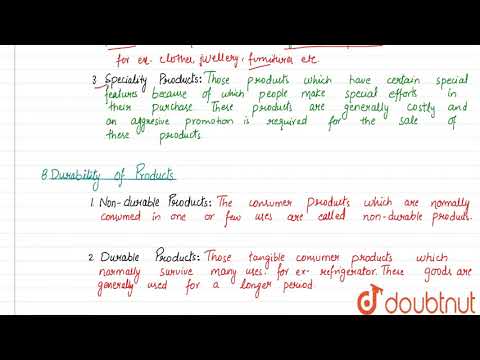 for ex- clothes, jwellery, furnitures etc.
3. Speciality Products: Those products which have certain special
features because of which people make special efforts in
their purchase. These products are generally costly and
an aggresive promotion is required for the sale of
these products.
B. Durability of Products
1. Non-durable Products: The consumer products which are normally
consumed in one or few uses are called non-durable products.
2. Durable Products: Those tangible consumer products which
normally survive many uses. for ex- refrigerator. These goods are
generally used for a longer period
doubtnut